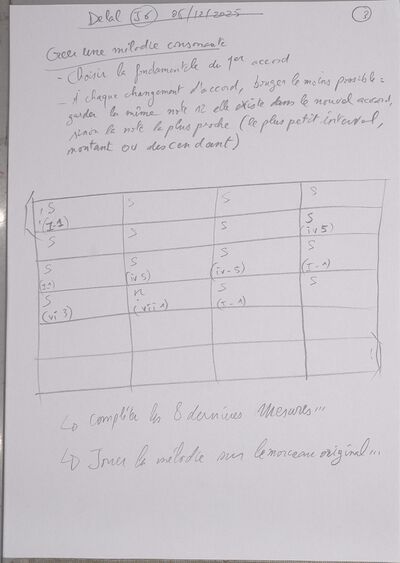 Delal (J6) 05/12/2025 3
Créer une mélodie consonante
- Choisir la fondamentale du 1er accord
- À chaque changement d'accord, bouger le moins possible :
garder la même note si elle existe dans le nouvel accord,
sinon la note la plus proche (le plus petit interval,
montant ou descendant)
S S S S
(I-1)
S S S S
(iv5)
S S S S
(I1) (iv5) (iv-5) (I-1)
S n S S
(vi 3) (vii 1) (I-1)
↳ Compléter les 8 dernières mesures...
↳ Jouer la mélodie sur le morceau original...